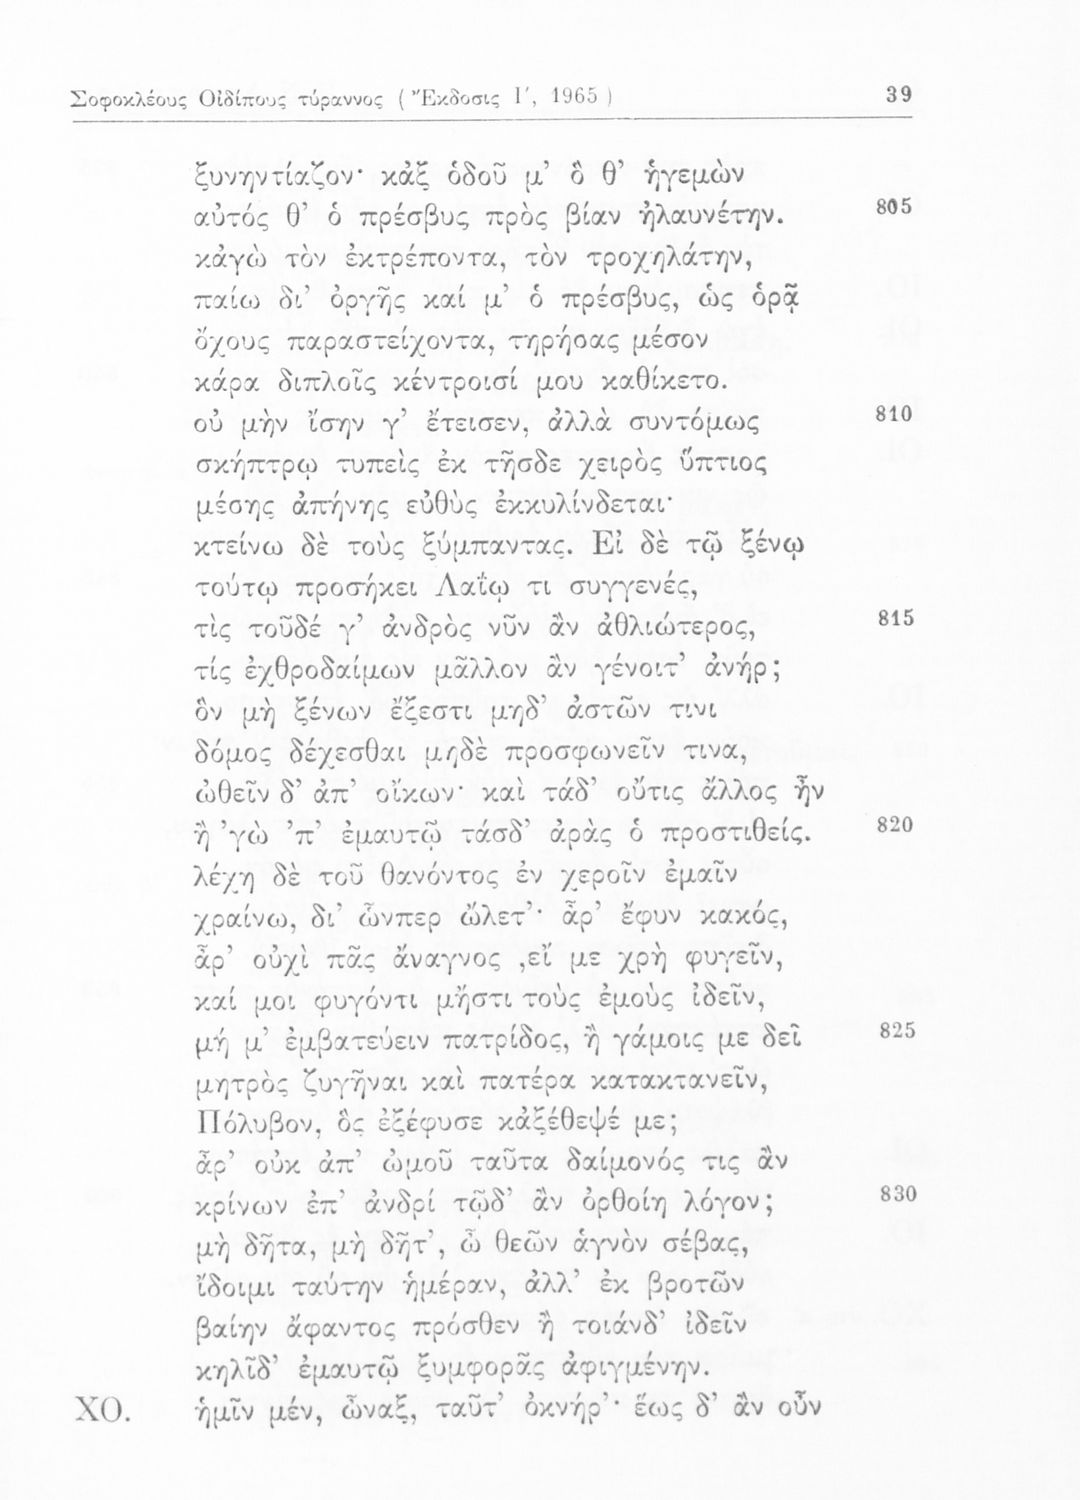 Σοφοκλέους Οἰδίπους τύραννος ( Ἔκδοσις Ι΄, 1965 ) 39
ξυνηντίαζον· κἀξ ὁδοῦ μ’ ὃ θ’ ἡγεμὼν
αὐτός θ’ ὁ πρέσβυς πρὸς βίαν ἠλαυνέτην. 805
κἀγὼ τὸν ἐκτρέποντα, τὸν τροχηλάτην,
παίω δι’ ὀργῆς καί μ’ ὁ πρέσβυς, ὡς ὁρᾷ
ὄχους παραστείχοντα, τηρήσας μέσον
κάρα διπλοῖς κέντροισί μου καθίκετο.
οὐ μὴν ἴσην γ’ ἔτεισεν, ἀλλὰ συντόμως 810
σκήπτρῳ τυπεὶς ἐκ τῆσδε χειρὸς ὕπτιος
μέσης ἀπήνης εὐθὺς ἐκκυλίνδεται·
κτείνω δὲ τοὺς ξύμπαντας. Εἰ δὲ τῷ ξένῳ
τούτῳ προσήκει Λαΐῳ τι συγγενές,
τὶς τοῦδέ γ’ ἀνδρὸς νῦν ἂν ἀθλιώτερος, 815
τίς ἐχθροδαίμων μᾶλλον ἂν γένοιτ’ ἀνήρ;
ὃν μὴ ξένων ἔξεστι μηδ’ ἀστῶν τινι
δόμος δέχεσθαι μηδὲ προσφωνεῖν τινα,
ὠθεῖν δ’ ἀπ’ οἴκων· καὶ τάδ’ οὔτις ἄλλος ἦν
ἢ ’γὼ ’π’ ἐμαυτῷ τάσδ’ ἀρὰς ὁ προστιθείς. 820
λέχη δὲ τοῦ θανόντος ἐν χεροῖν ἐμαῖν
χραίνω, δι’ ὧνπερ ὤλετ’· ἆρ’ ἔφυν κακός,
ἆρ’ οὐχὶ πᾶς ἄναγνος ,εἴ με χρὴ φυγεῖν,
καί μοι φυγόντι μἤστι τοὺς ἐμοὺς ἰδεῖν,
μή μ’ ἐμβατεύειν πατρίδος, ἢ γάμοις με δεῖ 825
μητρὸς ζυγῆναι καὶ πατέρα κατακτανεῖν,
Πόλυβον, ὃς ἐξέφυσε κἀξέθεψέ με;
ἆρ’ οὐκ ἀπ’ ὠμοῦ ταῦτα δαίμονός τις ἂν
κρίνων ἐπ’ ἀνδρί τῷδ’ ἂν ὀρθοίη λόγον; 830
μὴ δῆτα, μὴ δῆτ’, ὦ θεῶν ἁγνὸν σέβας,
ἴδοιμι ταύτην ἡμέραν, ἀλλ’ ἐκ βροτῶν
βαίην ἄφαντος πρόσθεν ἢ τοιάνδ’ ἰδεῖν
κηλῖδ’ ἐμαυτῷ ξυμφορᾶς ἀφιγμένην.
ΧΟ. ἡμῖν μέν, ὦναξ, ταῦτ’ ὀκνήρ’· ἕως δ’ ἂν οὖν